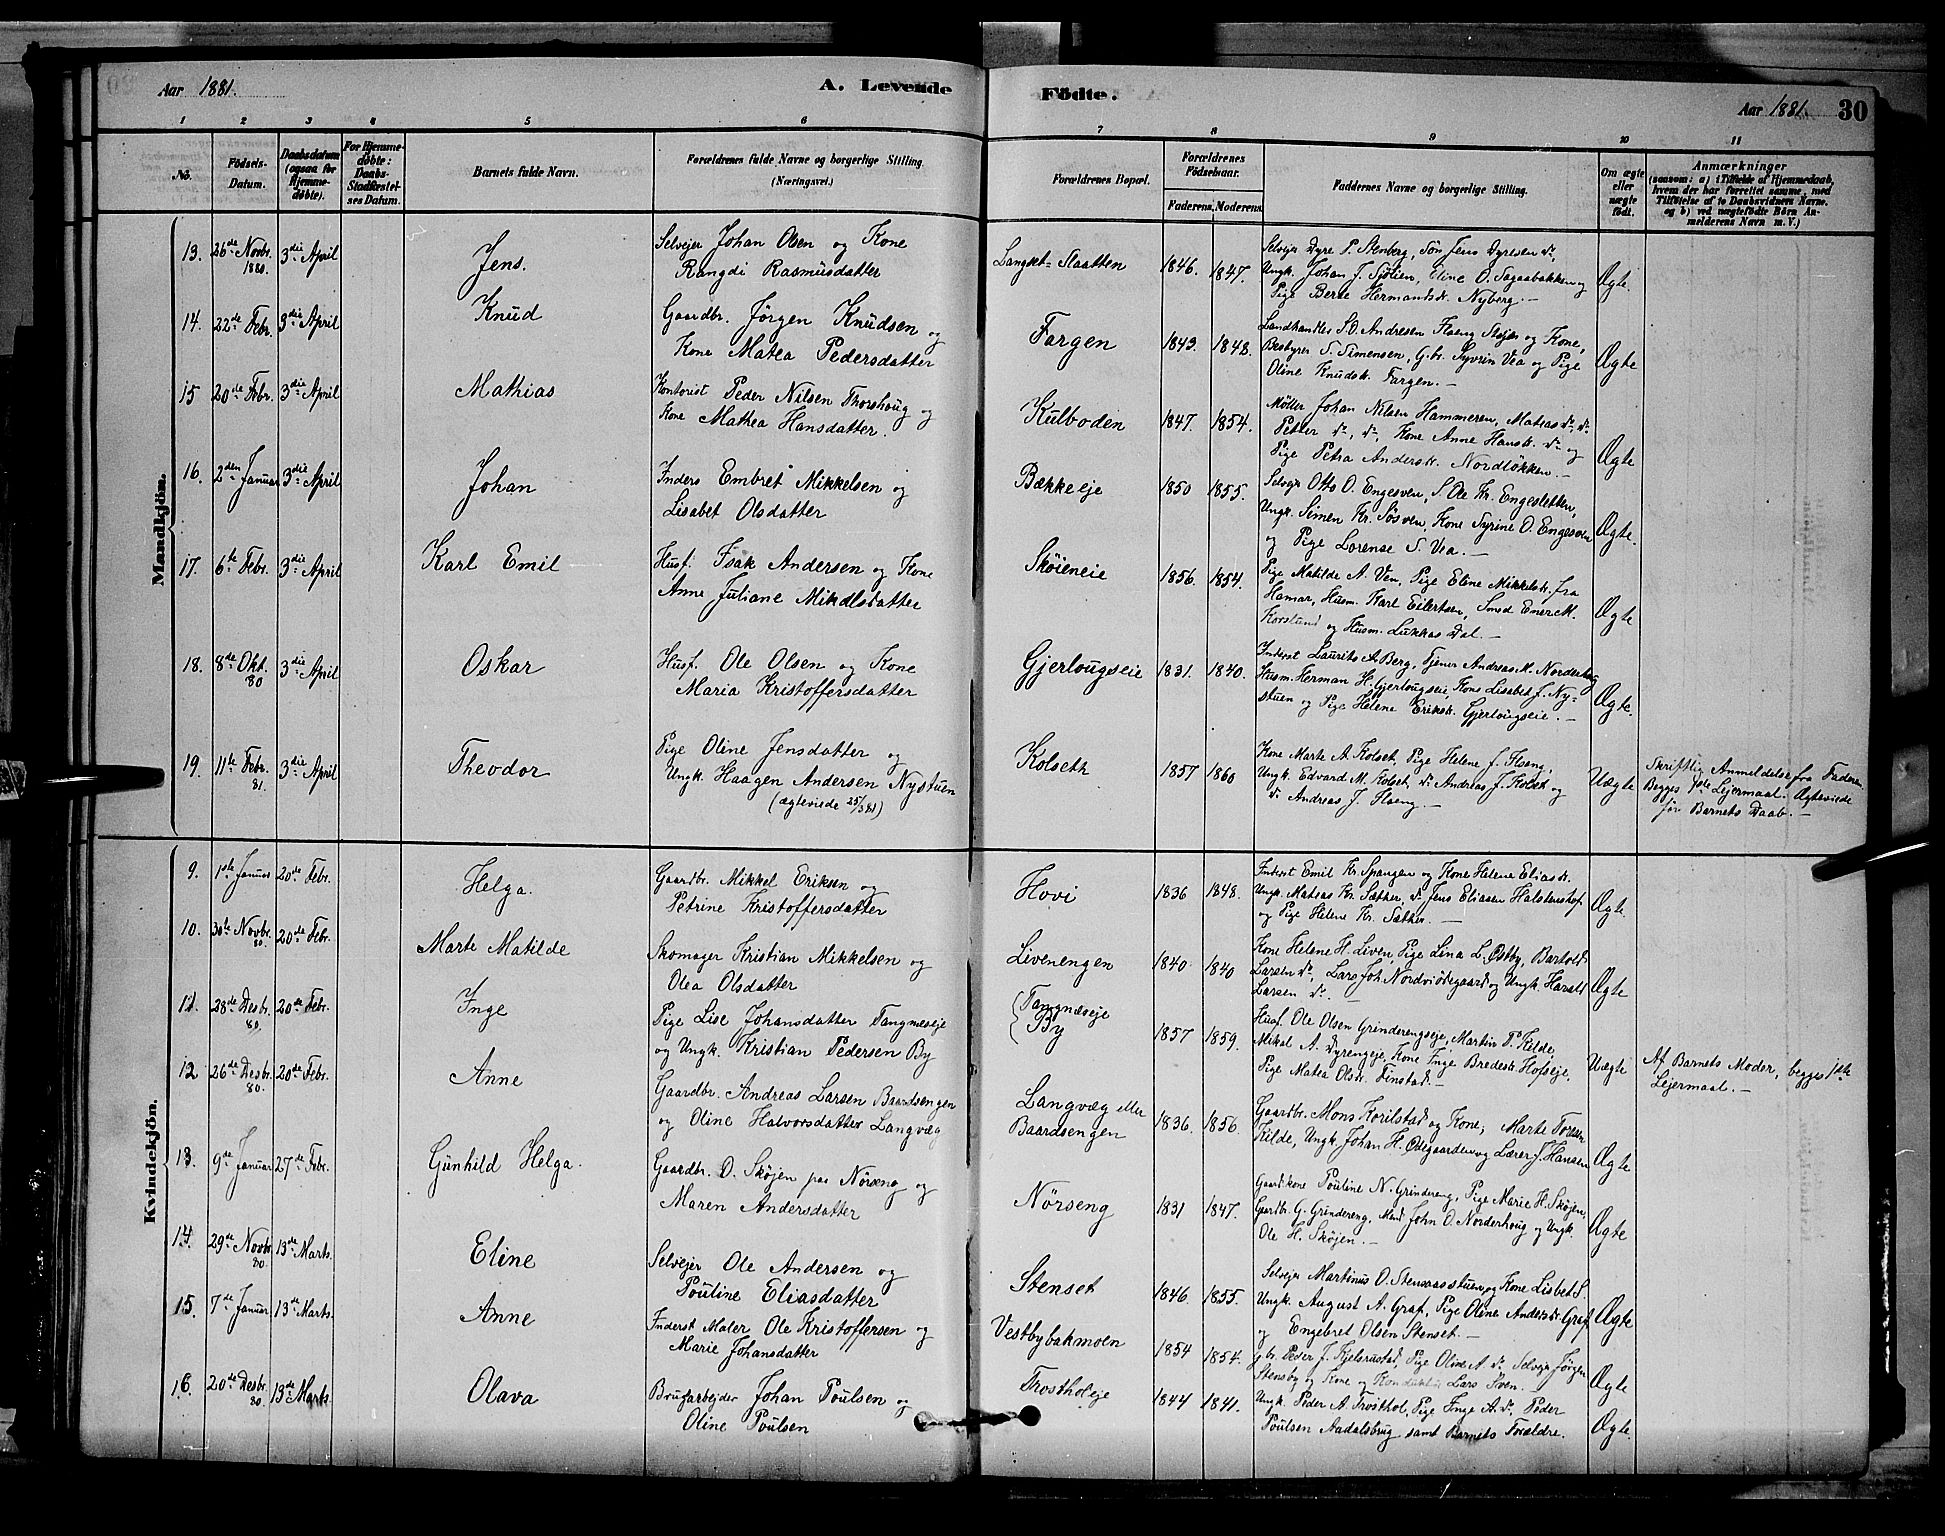 Aar 1881. A. Levende Fødte. Aar 1881. 30
1 2 3 4 5 6 7 8 9 10 11
No. Fødsels-Datum. Daabsdatum (ogsaa for Hjemmedøbte). For Hjemmedøbte: Daabs-Stadfæstelses Datum. Barnets fulde Navn. Forældrenes fulde Navne og borgerlige Stilling. (Næringsvei.) Forældrenes Bopæl. Forældrenes Fødselsaar. Faderens. Moderens. Faddernes Navne og borgerlige Stilling. Om ægte eller uægte født. Anmærkninger (saasom: a) i Tilfælde af Hjemmedaab, hvem der har forrettet samme, med Tilføielse af to Daabsvidners Navne. og b) ved uægtefødte Børn Anmelderens Navn m. V.)
Mandkjøn.
13. 26de Novbr. 1880. 3die April Jens. Selvejer Johan Olsen og Kone Langset-Slaatten 1846. 1847. Selvejer Dyre P. Stenberg, Søn Jens Dyresen do,
Rangdi Rasmusdatter Ungk. Johan J. Sjølien, Eline O. Sagaabakken og Ægte.
Pige Berte Hermandsd. Nyberg.—
14. 22de Febr. 3die April Knud Gaardbr. Jørgen Knudsen og Fargen 1843. 1848. Landhandler S. O. Andresen Floeng og Kone,
Kone Matea Pedersdatter Bestyrer S. Simensen, G.br. Syvrin Vea og Pige Ægte
Oline Knudsd. Fargen.—
15 20de Febr. 3die April Mathias Kontorist Peder Nilsen Thorshoug og Kulboden 1847. 1854. Møller Johan Nilsen Hammeren, Matias do, do
Kone Mathea Hansdatter. Petter do, do, Kone Anne Hansd. do og
Pige Petra Andersd. Nordløkken— Ægte
16. 2den Januar 3die April Johan Inders Embret Mikkelsen og Bækkeeje 1850 1855. Selvejer Otto O. Engesven, S. Ole Kr. Engesletten,
Lisabet Olsdatter Ungk. Simen Kr. Søsven, Kone Syrine O. Engesven Ægte.
og Pige Lorense S. Vea.—
17. 6te Febr. 3die April Karl Emil Husf. Isak Andersen og Kone Skøieneie 1856. 1854. Pige Matilde A. Ven, Pige Eline Mikkelsd. fra
Anne Juliane Mikdlsdatter Hamar, Husm. Karl Eilertsen, Smed Ener M. Ægte
Korslund og Husm. Lukkas Dal.—
18. 8de Okt. 80 3die April Oskar Husf. Ole Olsen og Kone Gjerlougseie 1831. 1840. Inderst Laurits A. Berg, Tjener Andreas M. Norderhoug
Maria Kristoffersdatter Husm. Herman H. Gjerlougseie, Kone Lisabet J. Ny-
stuen og Pige Helene Eriksd. Gjerlougseie.— Ægte.
19. 11te Febr. 81. 3die April Theodor Pige Oline Jensdatter og Kolseth 1857 1860 Kone Marte A. Kolset, Pige Helene J. Floeng, Uægte Skriftlig Anmeldelse fra Faderen
Ungk. Haagen Andersen Nystuen Ungk. Edvard M. Kolset, do Andreas J. Kolset og Begges 1ste Lejermaal. Ægteviede
(ægteviede 25/3 81) do Andreas J. Floeng.— før Barnets Daab.—
Kvindekjøn.
9. 1ste Januar 20de Febr. Helga. Gaardbr. Mikkel Eriksen og Hovi 1836 1848. Inderst Emil Kr. Spangen og Kone Helene Eliasd.
Petrine Kristoffersdatter Ungk. Mateas Kr. Sæther, do Jens Eliasen Halstenshof Ægte.
og Pige Helene Kr. Sæther.—
10. 30te Novbr. 80. 20de Febr. Marte Matilde Skomager Kristian Mikkelsen og Livenengen 1840. 1840 Kone Helene H. Liven, Pige Lina L. Østby, Bartold
Olea Olsdatter Larsen do, Lars Joh. Nordviødegaard og Ungk. Harald Ægte
Larsen do.—
11. 28de Desbr. 80. 20de Febr. Inge Pige Lise Johansdatter Tangnæseje Tangnæseje 1857 1859. Husf. Ole Olsen Grinderengseje, Martin P. Kilde,
og Ungk. Kristian Pedersen By By Mikal A. Dyrengeje, Kone Inge Bredesd. Hofseje, Uægte Af Barnets Moder, begges 1ste
Pige Matea Olsd. Finstad.— Lejermaal.—
12 26de Desbr. 80. 20de Febr. Anne Gaardbr. Andreas Larsen Baardsengen Langvæg eller 1836. 1856. Gaardbr. Mons Korilstad og Kone, Marte
og Oline Halvorsdatter Langvæg Baardsengen Kilde, Ungk. Johan H. Ødegaarden og Lærer J. Hansen Ægte
13. 9de Januar 27de Febr. Gunhild Helga. Gaardbr. O. Skøjen paa Nørseng og Nørseng 1831 1847. Gaardkone Pouline N. Grindereng, Pige Marie H. Skøjen,
Maren Andersdatter Gaardbr. G. Grindereng, Mand John O. Norderhoug og Ungk. Ægte
Ole H. Skøjen.—
14. 29de Novbr. 80. 13de Marts. Eline Selvejer Ole Andersen og Stenset 1846. 1855. Selvejer Martinus O. Stensaasstuen og Kone Lisbet S.
Pouline Eliasdatter Ungk. August A. Graf, Pige Oline Andersd. Graf Ægte
og Engebret Olsen Stenset.—
15. 7de Januar 13de Marts. Anne Inderst Maler Ole Kristoffersen og Vestbybakmoen 1854 1854. g.br. Peder J. Kjelsrustad, Pige Oline A. do Selvejer Jørgen
Marie Johansdatter Stensby og Kone og Konduktør Lars Iven. Ægte
16. 20de Desbr. 80. 13de Marts. Olava Brugarbejder Johan Poulsen og Trostholeje 1844 1841. Ungk. Peder A. Trosthol, Pige Inge A. do, Peder
Oline Poulsen Poulsen Aadalsbrug samt Barnets Forældre. Ægte.